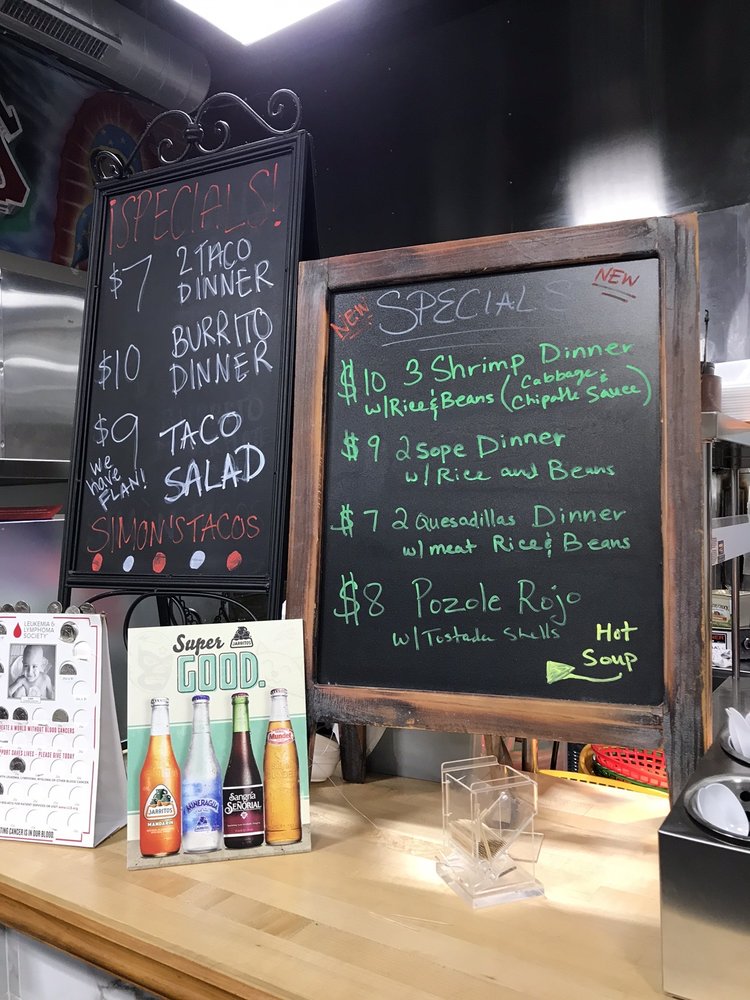 ¡SPECIALS!
$7 2 TACO
DINNER
$10 BURRITO
DINNER
$9 TACO
SALAD
we
have
FLAN!
SIMON'S TACOS
NEW
SPECIALS
NEW
$10 3 Shrimp Dinner
w/Rice & Beans (Cabbage &
Chipotle Sauce)
$9 2 Sope Dinner
w/ Rice and Beans
$7 2 Quesadillas Dinner
w/ meat Rice & Beans
$8 Pozole Rojo
w/ Tostada Shells
Hot
Soup
LEUKEMIA &
LYMPHOMA
SOCIETY
A WORLD WITHOUT BLOOD CANCERS
SAVES LIVES - PLEASE GIVE TODAY
CANCER IS IN OUR BLOOD
Super
JARRITOS
GOOD.
JARRITOS
MANDARIN
MINERAGUA
Sangría
SEÑORIAL
Mundet